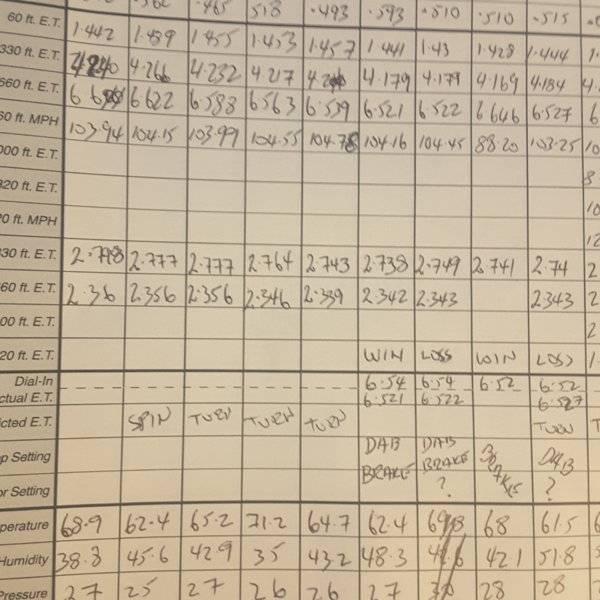 .465 518 .493 .593 .510 .510 .515
60 ft. E.T. 1.442 1.489 1.455 1.453 1.457 1.441 1.43 1.428 1.444 1.
330 ft. E.T. 4.266 4.232 4.217 4.179 4.179 4.169 4.184 4.
660 ft. E.T. 6622 6.588 6.563 6.539 6.521 6.522 6646 6.527 6
60 ft. MPH 103.94 104.15 103.99 104.55 104.78 104.16 104.45 88.20 103.25 10
000 ft. E.T. 8.
320 ft. E.T. 10
20 ft. MPH 12
330 ft. E.T. 2.798 2.777 2.777 2.764 2.743 2.738 2.749 2.741 2.74 2
660 ft. E.T. 2.36 2.356 2.356 2.346 2.339 2.342 2.343 2.343 2
000 ft. E.T. 2
20 ft. E.T. WIN LOSS WIN LOSS 1.
Dial-In 6.54 6.54 6.52 6.52
ctual E.T. 6.521 6.522 6.527
icted E.T. SPIN TURN TURN TURN TURN T
p Setting DAB BRAKE DAB BRAKE ? BRAKES DAB ?
or Setting
perature 68.9 62.4 65.2 71.2 64.7 62.4 68 61.5
Humidity 38.3 45.6 42.9 35 43.2 48.3 42.1 51.8
Pressure 27 25 27 26 26 27 30 28 28